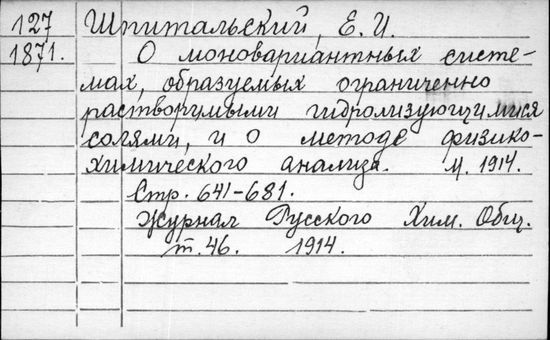 127 Шпитальский, Е. И.
1871. О моновариантных систе-
мах, образуемых ограниченно
растворимыми гидролизующимися
солями, и о методе физико-
химического анализа. М. 1914.
Стр. 641-681.
Журнал Русского Хим. Общ.
т. 46. 1914.